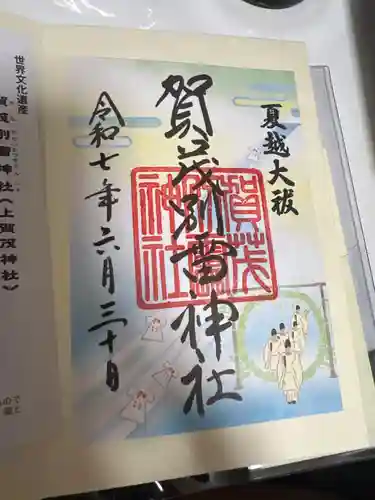 夏越大祓
賀茂別雷神社
賀茂
別雷
神社
令和七年六月三十日
世界文化遺産
賀茂別雷神社(上賀茂神社)